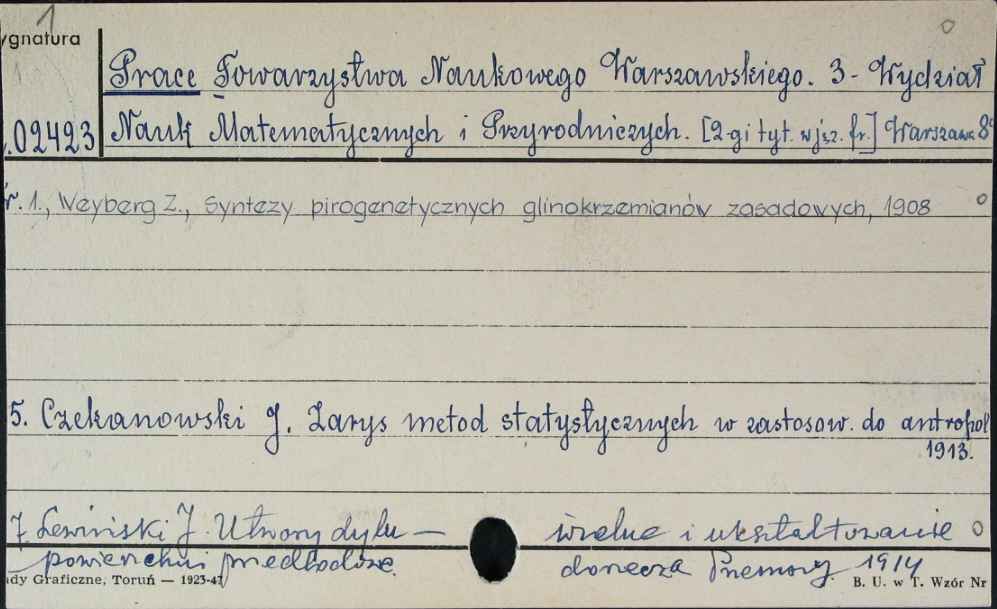 1
ygnatura
Prace Towarzystwa Naukowego Warszawskiego. 3- Wydział
.02423 Nauk Matematycznych i Przyrodniczych. [2-gi tyt. w jęz. fr.] Warszawa 8°
r. 1., Weyberg Z., Syntezy pirogenetycznych glinokrzemianów zasadowych, 1908
5. Czekanowski J. Zarys metod statystycznych w zastosow. do antropol
1913.
7 Lewiński J. Utwory dylu— wialne i ukształtowanie
powierzchni przedlodowc. dorzecza Przemszy 1914
ady Graficzne, Toruń — 1923-47 B. U. w T. Wzór Nr